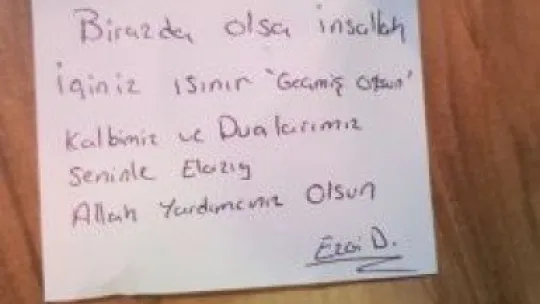 Birazda olsa inşallah
İçiniz ısınır "Geçmiş olsun"
Kalbimiz ve Dualarımız
Seninle Elazığ
Allah Yardımcınız Olsun
Ezgi D.